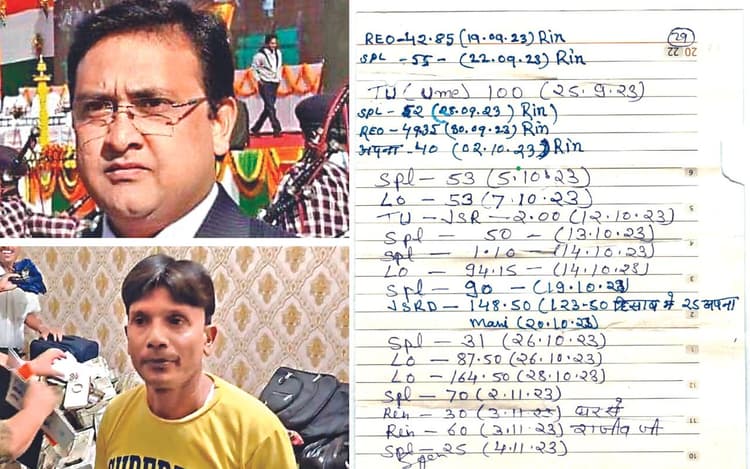 29
20 22
REO-42.85 (19.09.23) Rin
SPL -55- (22.09.23) Rin
TU (Ume) 100 (25.9.23)
SPL - 52 (25.09.23) Rin)
REO-4935 (30.09.23) Rin
अपना-40 (02.10.23) Rin
Spl - 53 (5.10.23)
Lo - 53 (7.10.23)
TU - JSR - 2.00 (12.10.23)
Spl - 50 - (13.10.23)
Spl - 1.10 - (14.10.23)
Lo - 94.15 - (14.10.23)
Spl - 90 - (19.10.23)
JSRD - 148.50 (123.50 हिसाब में 25 अपना
Mani (20.10.23)
Spl - 31 (26.10.23)
Lo - 87.50 (26.10.23)
Lo - 164.50 (28.10.23)
Spl - 70 (2.11.23)
Ren - 30 (3.11.23) घर से
Ren - 60 (3.11.23) राजीव जी
Spl - 25 (4.11.23)
6
5
4
3
2
1
12
11
10